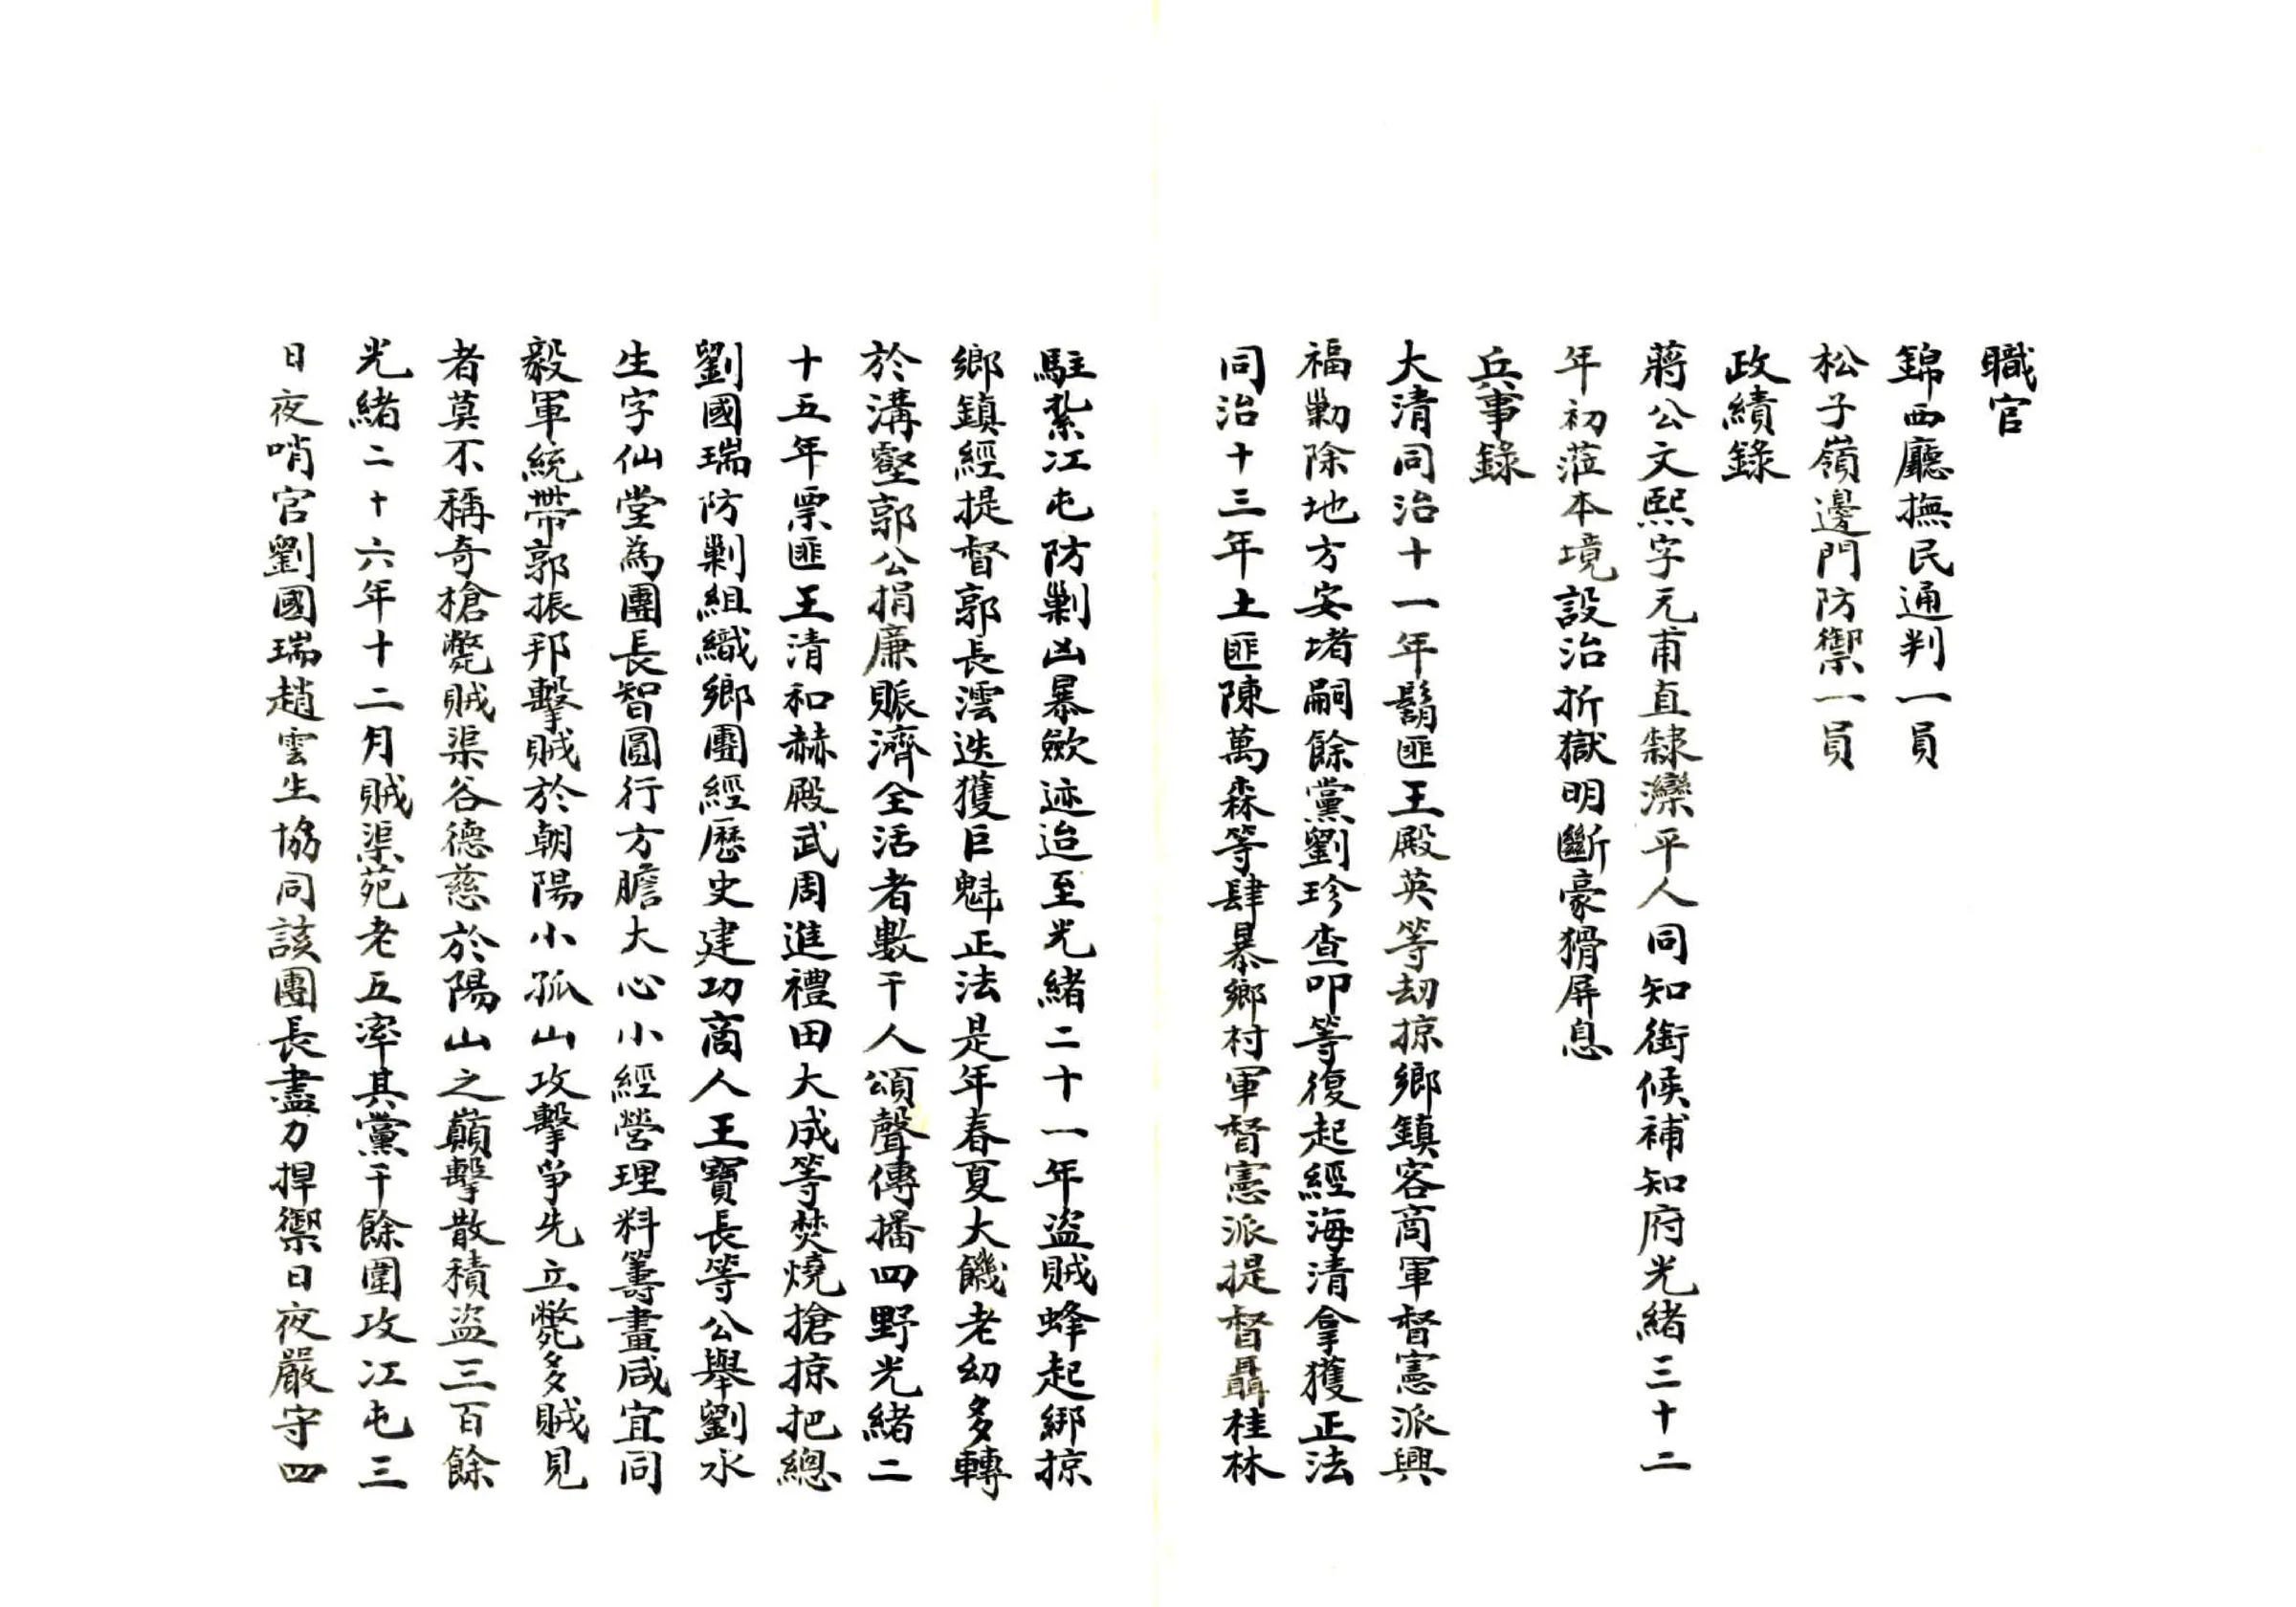 職官
錦西廳撫民通判一員
松子嶺邊門防禦一員
政績錄
蔣公文熙字元甫直隸灤平人同知銜候補知府光緒三十二
年初蒞本境設治折獄明斷豪猾屏息
兵事錄
大清同治十一年鬍匪王殿英等劫掠鄉鎮客商軍督憲派興
福勦除地方安堵嗣餘黨劉珍查叩等復起經海清拿獲正法
同治十三年土匪陳萬森等肆暴鄉村軍督憲派提督聶桂林
駐紮江屯防剿凶暴歛迹迨至光緒二十一年盜賊蜂起綁掠
鄉鎮經提督郭長澐迭獲巨魁正法是年春夏大饑老幼多轉
於溝壑郭公捐廉賑濟全活者數千人頌聲傳播四野光緒二
十五年票匪王清和赫殿武周進禮田大成等焚燒搶掠把總
劉國瑞防剿組織鄉團經歷史建功商人王寶長等公舉劉水
生字仙堂為團長智圓行方膽大心小經營理料籌畫咸宜同
毅軍統帶郭振邦擊賊於朝陽小孤山攻擊爭先立斃多賊見
者莫不稱奇槍斃賊渠谷德慈於陽山之巔擊散積盜三百餘
光緒二十六年十二月賊渠苑老五率其黨千餘圍攻江屯三
日夜哨官劉國瑞趙雲生協同該團長盡力捍禦日夜嚴守四